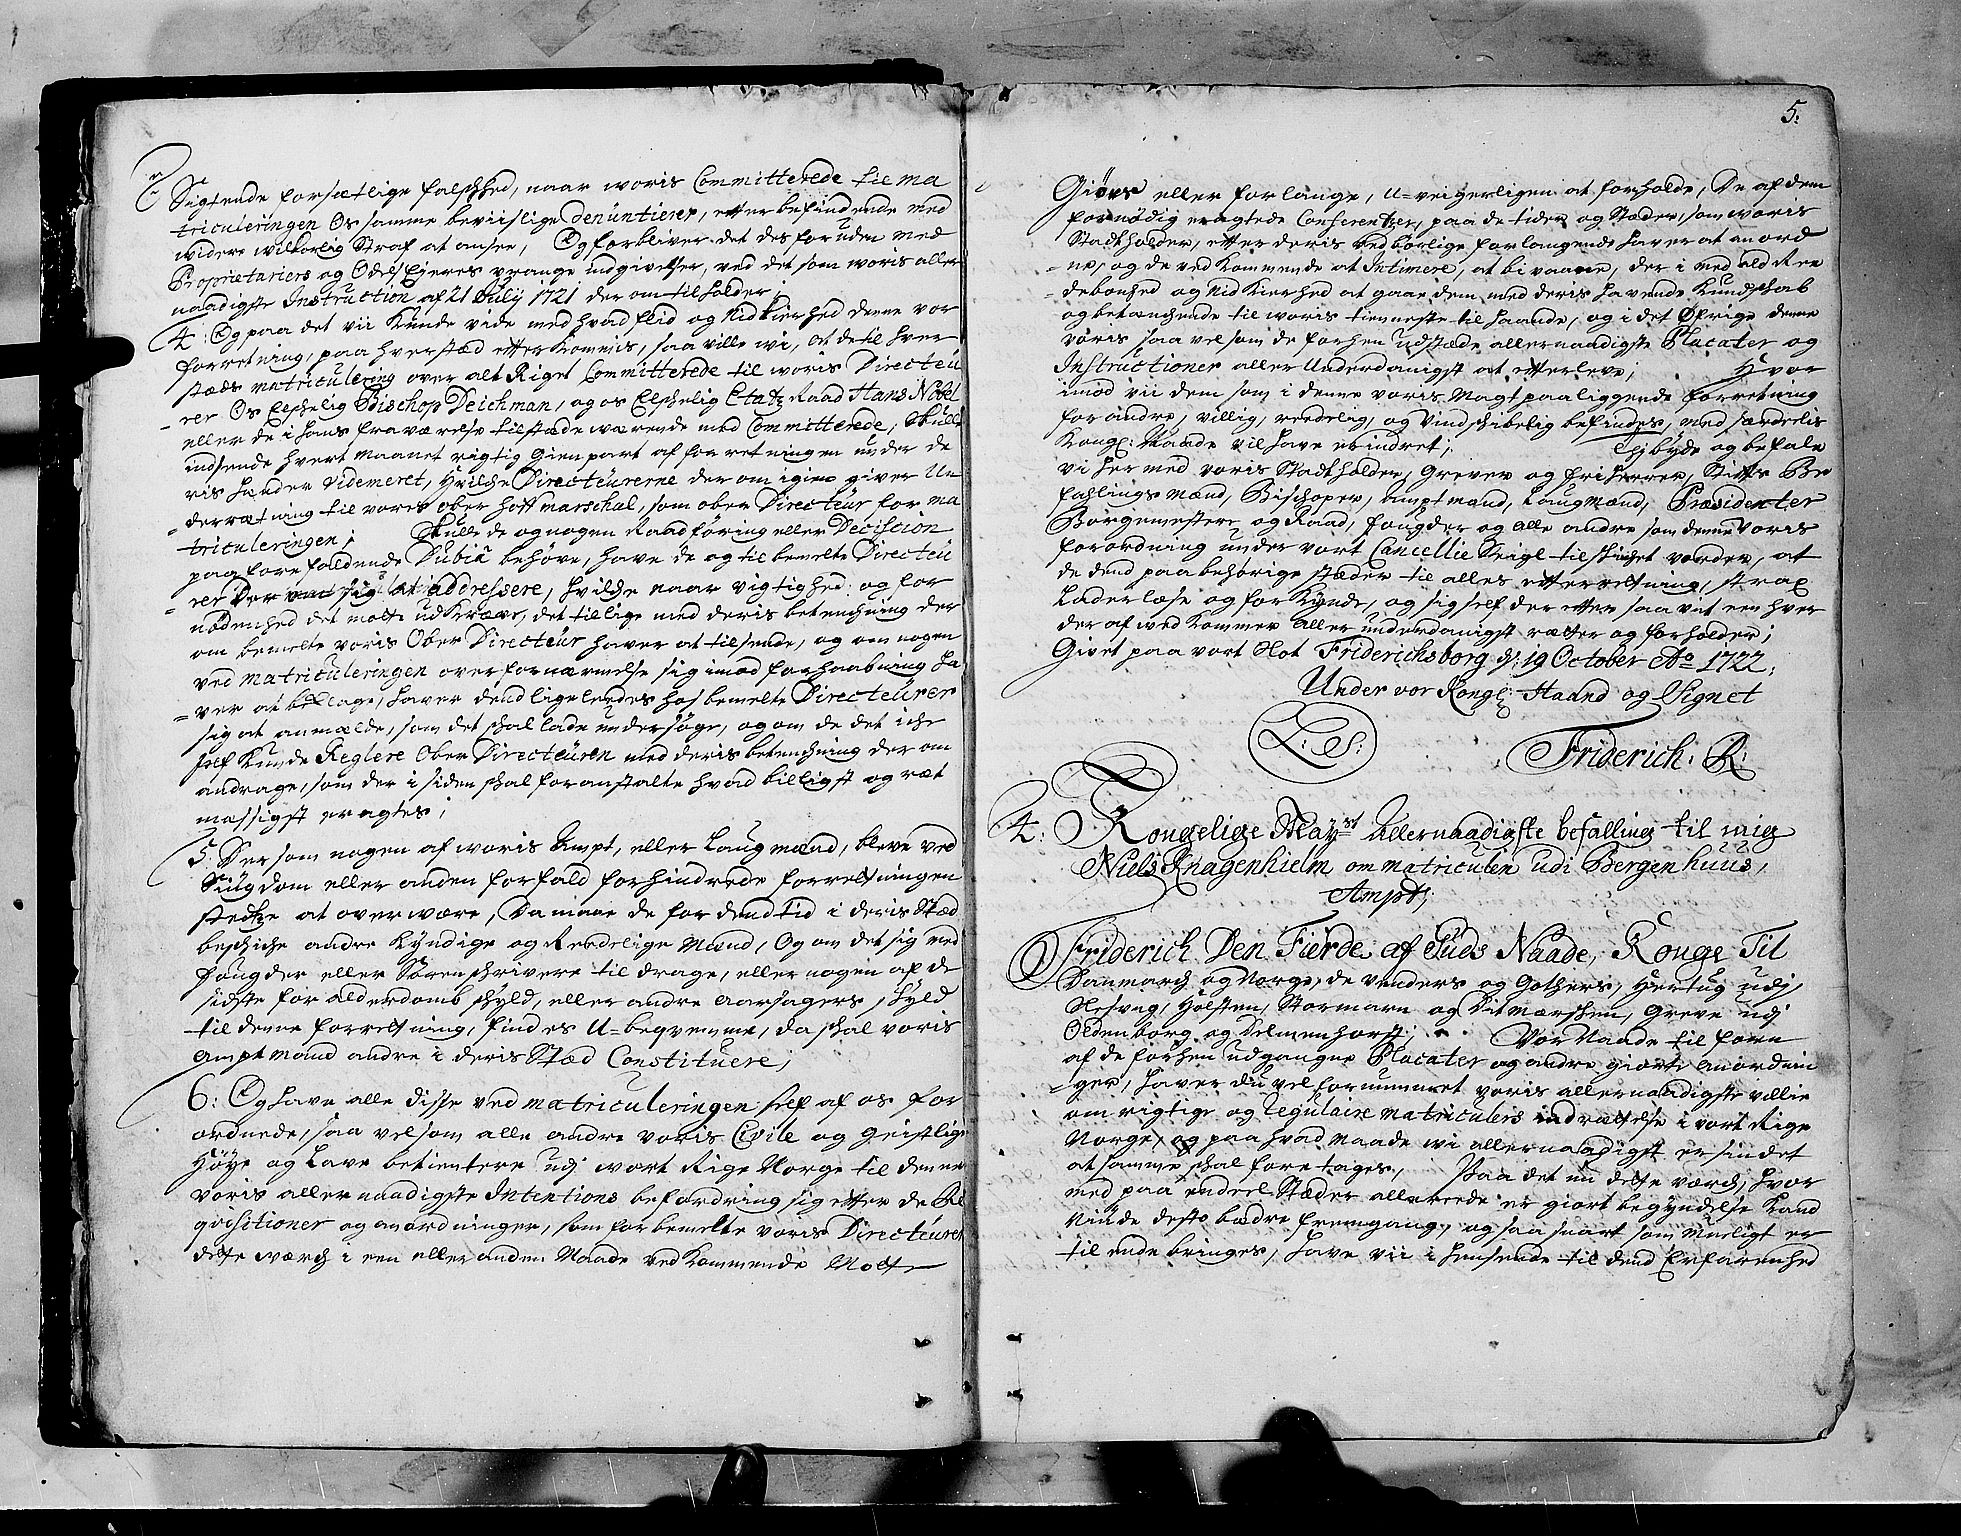 Sigtende forsætlige falschhed, naar woris Committerede til ma
triculeringen Os samme beviislige denuntierer, efter befindende med
widere wilkorlig Straf at ansee, Og forbliver det des foruden med
Proprietariers og Odels Ejeres vrange indgivelser, ved det som woris aller
naadigste Instruction af 21 July 1721 der om tilholder;
4: Og paa det vii kunde vide med hvad flid og Nidkierhed denne vor
forretning, paa hver stæd efterkommis, saa ville wi, at de til hver
stæds matriculering over alt Riget Committerede til woris Directeu
rer Os Elskelig Bischop Deichman, og os Elskelig Etatz Raad Hans Nobel
eller de i hans fraværelse tilstædeværende med Committerede, Skulle
indsende hvert Maanet rigtig Gienpart af forretningen under de
ris hænder Videmeret, hvilche Directeurerne der om igien giver Un
derrætning til vores ober hoff marschal, som ober Directeur for ma
triculeringen; Skulle de og nogen Raadføring eller Deciscion
paa forefaldende Dubia behøve, have de og til bemelte Directeu
rer Der sig at addressere, hvilche naar vigtighed og for
nødenhed det motte udkræve, det tillige med deris betenchning der
om bemelte voris Ober Directeur haver at tilsende, og om nogen
ved matriculeringen over fornærmelse sig imod forhaabning ha
ver at beklage, haver dend ligeleedes hos bemelte Directeurer
sig at anmælde, som det skal lade undersøge, og om de det iche
self kunde Reglere Ober Directeuren med deris betenchning der om
andrage, som der i siden skal foranstalte hvad billigst og ræt
mæssigst eragtes;
5: Der som nogen af woris Ampt, eller Laugmænd, bleve ved
Siugdom eller anden forfald forhindrede forretningen
stedtze at overwære, Da maae de for dend tid i deris Stæd
beschiche andre kyndige og Reedelige Mænd, Og om det sig med
fougder eller Sorenschrivere til drage, eller nogen af de
sidste for alderdomb skyld, eller andre aarsagers skyld
til denne forretning, findes U-beqvemme, da skal voris
Amptmand andre i deris Stæd Constituere;
6: Og have alle disse ved matriculeringen self af os for
ordnede, saa vel som alle andre voris Civile og Geistlige
Høye og Lave betientere udj wort Rige Norge til denne
voris allernaadigste Intentions befordring sig efter de Re
qvisitioner og anordninger, som forbemelte voris Directeurer
dette værch i een eller anden Maade ved kommende Motte
5:
Giøre eller forlange, U-veigerligen at forholde, De af dem
fornødig eragtede Conferentzer, paa de tider og Stæder, som woris
Stadtholder, efter deris Vedbørlige forlangende haver at anord
ne, og de ved kommende at Intimere, at bivaane, der i med ald Ree
debonhed og Nidkierhed at gaae dem med deris havende Kundschab
og betænchende til woris tienneste til haande, og i det Øfrige denne
voris saa vel som de forhen udstæde allernaadigste Placater og
Instructioner aller Underdanigst at efterleve; Hvor
imod vii dem som i denne voris Magt paaliggende forretning
for andre, villig, reedelig, og Vindschibelig befindes, med særdelis
Kongl: Naade vil have erindret; Thj byde og befale
vi her med voris Stadtholder, Grever og friherrer, Stifts Be
fahlings mænd, Bischoper, Amptmænd, Laugmænd, Præsidenter
Borgemestere og Raad, fougder og alle andre som denne voris
forordning under vort Cancellie Seigl tilskichet vorder, at
de dend paa behørige stæder til alles efterretning, strax
Lader læse og forkynde, og sig self der efter saa vit een hver
der af ved kommer aller underdanigst rætter og forholder;
Givet paa vort Slot Friderichsborg d: 19 October Ao 1722;
Under vor Kongl: Haand og Signet
L: S:
Friderich: R:
4: Kongelige Mayst Allernaadigste befalling til mig
Niels Knagenhielm om matriculen udi Bergenhuus,
Ampt;
Friderich Den Fierde af Guds Naade, Konge Til
Danmarch og Norge, de Venders og Gothers, Hertug udj,
Slesvug, Holsten, Stormarn og Ditmærschen, Greve udj
Oldenborg og Delmenhorst; Vor Naade til forn
af de forhen udgangne Placater og andre giorte Anordnin
ger, haver Du vel fornummet voris allernaadigste villie
om rigtige og Regulaire matriculers indrættelse i vort Rige
Norge, og paa hvad Maade wi allernaadigst er sindet
at samme skal foretages, Paa det nu dette værch, hvor
med paa endeel Stæder allereede er giort begyndelse kand
vinde desto bædre fremgang, og saa snart som Muligt er
til ende bringes, have vii i henseende til dend Erfarenhed